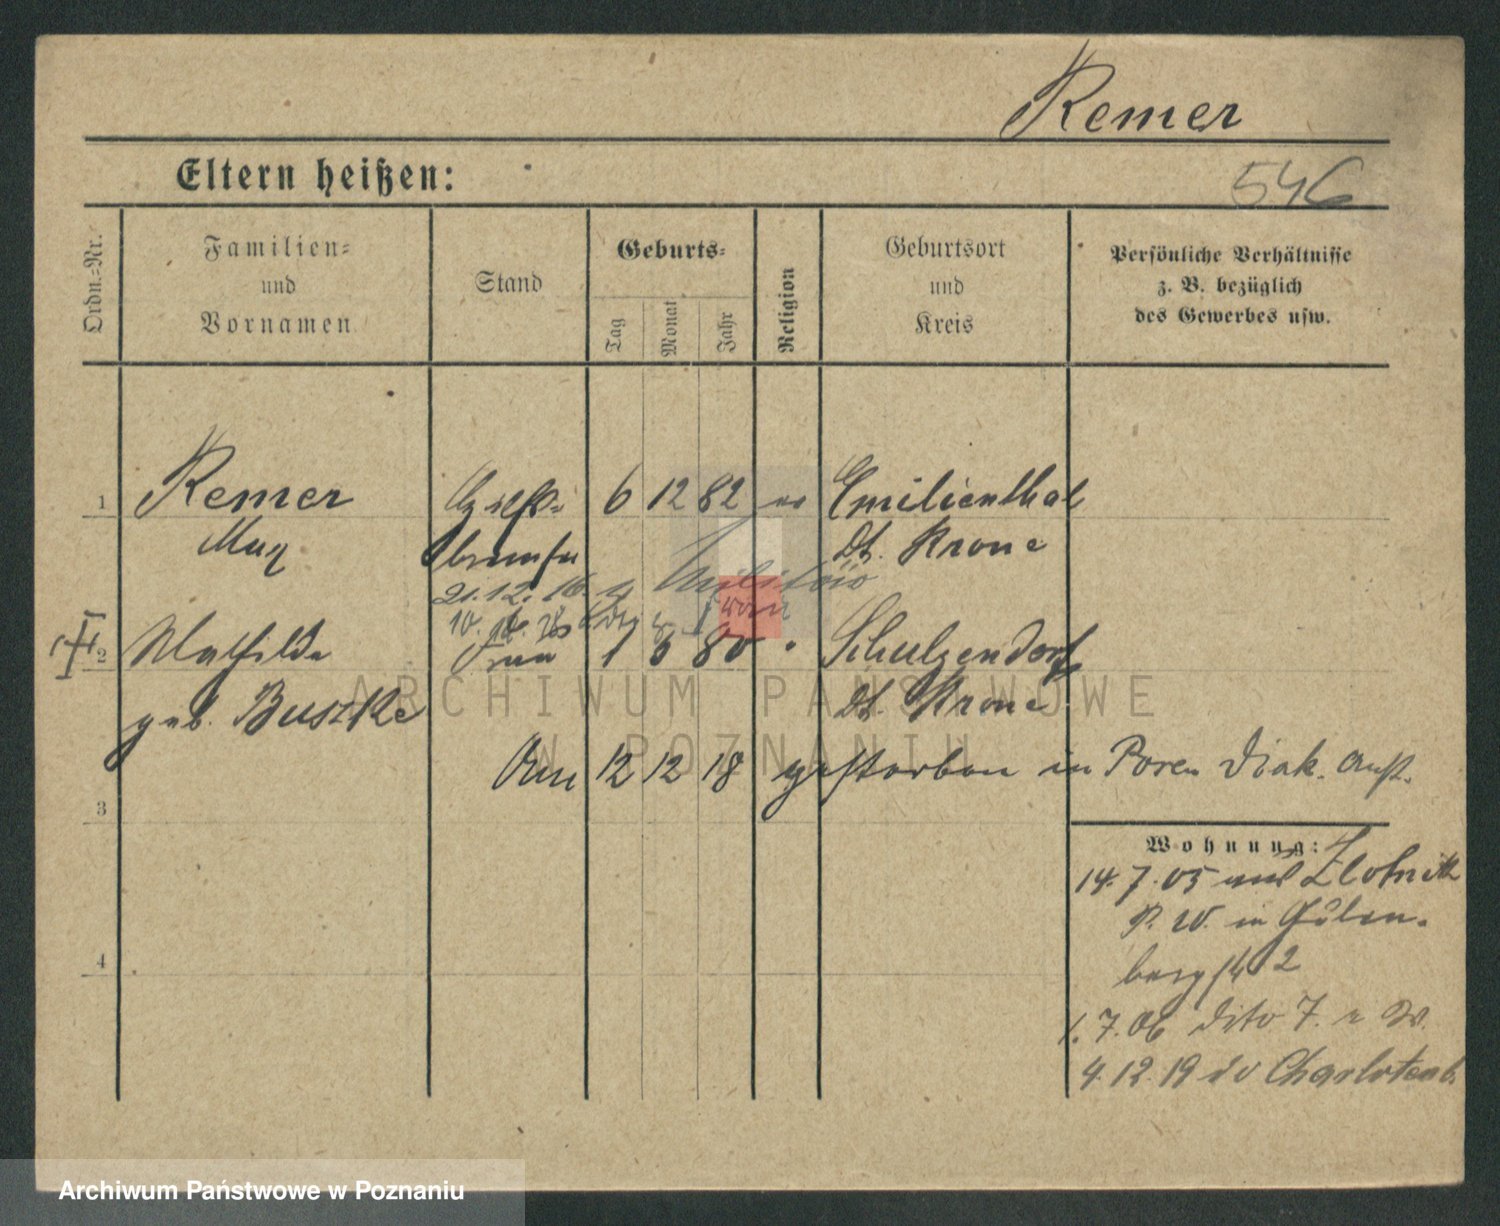 Remer
Eltern heißen:
546
Ordn.=Nr.
Familien=
und
Vornamen
Stand
Geburts=
Tag
Monat
Jahr
Religion
Geburtsort
und
Kreis
Persönliche Verhältnisse
z. B. bezüglich
des Gewerbes usw.
1 Remer 6 12 82 ev Emilienthal
Max Dt. Krone
21.12.16. z Militär
2 Mathilde Frau 1 3 80 " Schulzendorf
geb. Bustke Dt. Krone
Am 12 12 18 gestorben in Posen Diak. Anst.
3
Wohnung:
14.7.05 aus Zlotnik
P. W. in Gülden-
4
1.7.06 dito 7.
4.12.19 Charlottenb.
ARCHIWUM PAŃSTWOWE
W POZNANIU
Archiwum Państwowe w Poznaniu